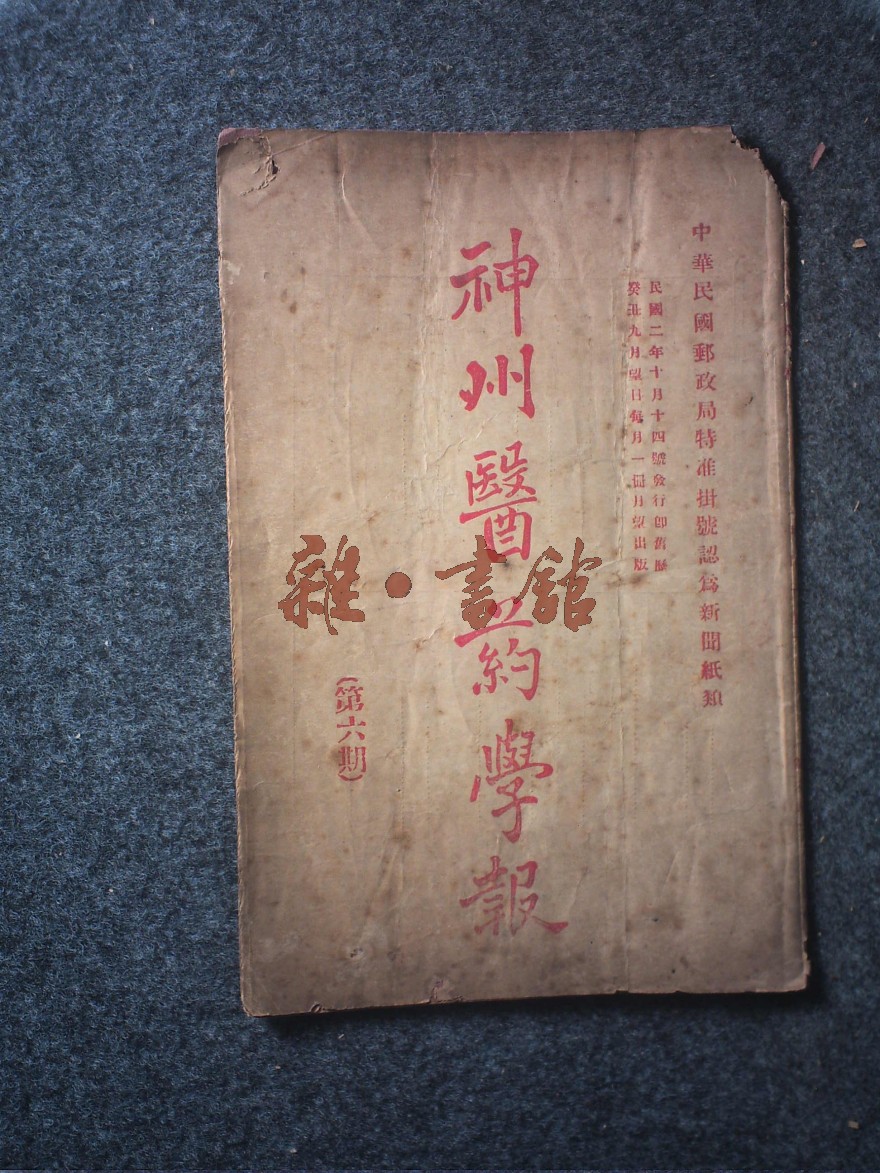 中華民國郵政局特准掛號認爲新聞紙類
民國二年十月十四號發行卽舊歷
癸丑九月望日每月一冊月望出版
神州醫葯學報
(第六期)
雜·書館